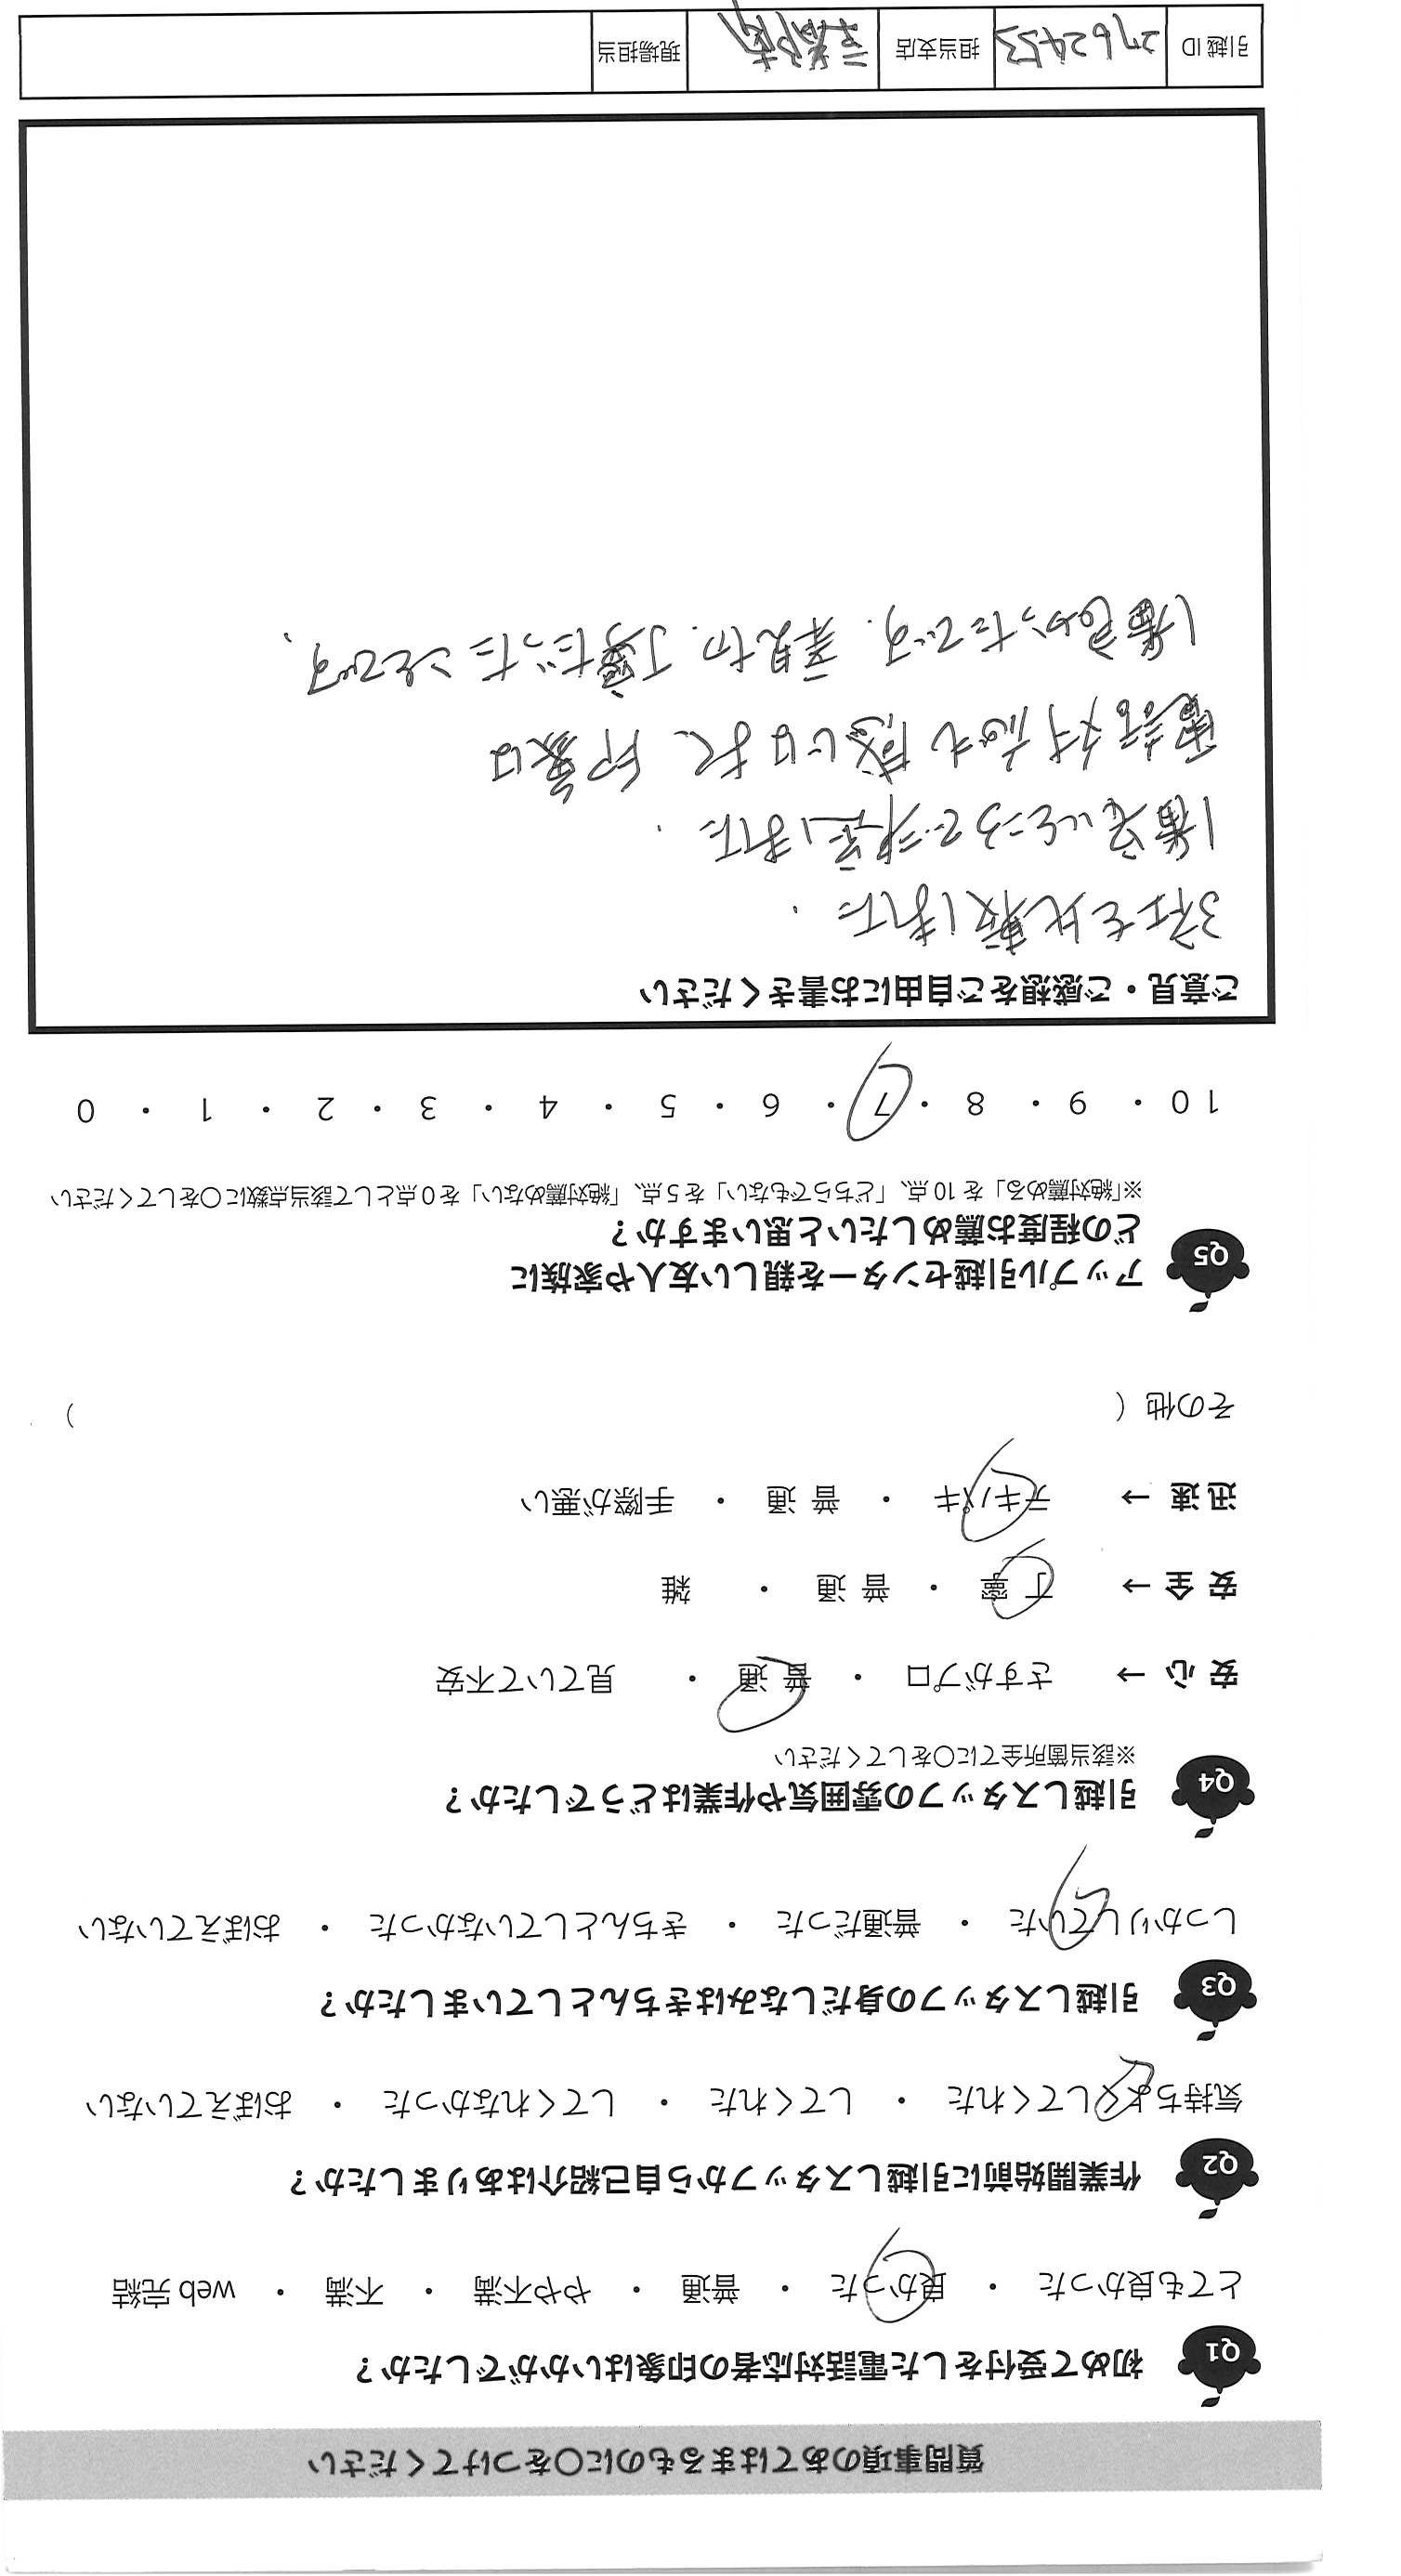 質問事項のあてはまるものに○をつけてください
Q1 初めて受付をした電話対応者の印象はいかがでしたか？
とても良かった ・ 良かった ・ 普通 ・ やや不満 ・ 不満 ・ web 完結
Q2 作業開始前に引越しスタッフから自己紹介はありましたか？
気持ちよくしてくれた ・ してくれた ・ してくれなかった ・ おぼえていない
Q3 引越しスタッフの身だしなみはきちんとしていましたか？
しっかりしていた ・ 普通だった ・ きちんとしていなかった ・ おぼえていない
Q4 引越しスタッフの雰囲気や作業はどうでしたか？
※該当箇所全てに○をしてください
安心 → さすがプロ ・ 普通 ・ 見ていて不安
安全 → 丁寧 ・ 普通 ・ 雑
迅速 → テキパキ ・ 普通 ・ 手際が悪い
その他（ ）
Q5 アップル引越センターを親しい友人や家族に
どの程度お薦めしたいと思いますか？
※「絶対薦める」を 10 点、「どちらでもない」を 5 点、「絶対薦めない」を 0 点として該当点数に○をしてください
10 ・ 9 ・ 8 ・ 7 ・ 6 ・ 5 ・ 4 ・ 3 ・ 2 ・ 1 ・ 0
ご意見・ご感想をご自由にお書きください
3社を比較しました.
1番安いところで決定しました.
電話対応も感じはよく 印象は
1番良かったです. 親切. 丁寧だったことです、
引越 ID 2762453 担当支店 京都南 現場担当